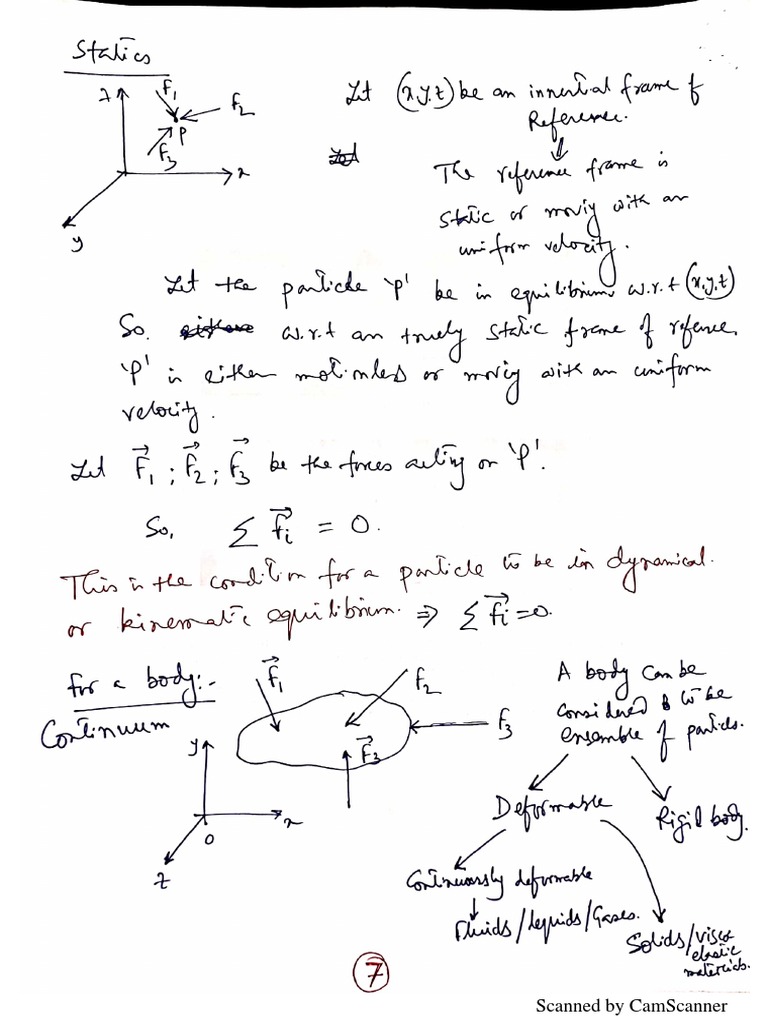 Statics
z
F1
F2
P
F3
x
y
Let (x,y,z) be an innertial frame of
Reference.
Let
The reference frame is
static or moving with an
uniform velocity.
Let the particle 'P' be in equilibrium w.r.t (x,y,z)
So. either w.r.t an truely static frame of refence,
'P' is either motionless or moving with an uniform
velocity.
Let F⃗1 ; F⃗2 ; F⃗3 be the forces acting on 'P'.
So, Σ F⃗i = 0.
This is the condition for a particle to be in dynamical.
or kinematic equilibrium. ⇒ Σ F⃗i = 0.
For a body:-
Continuum
F⃗1
F2
F3
F⃗3
y
x
O
z
A body can be
considered to be
ensemble of particles.
Deformable
Rigid body.
Continuously deformable
Fluids/Liquids/Gases.
Solids/visco
elastic
materials.
7
Scanned by CamScanner